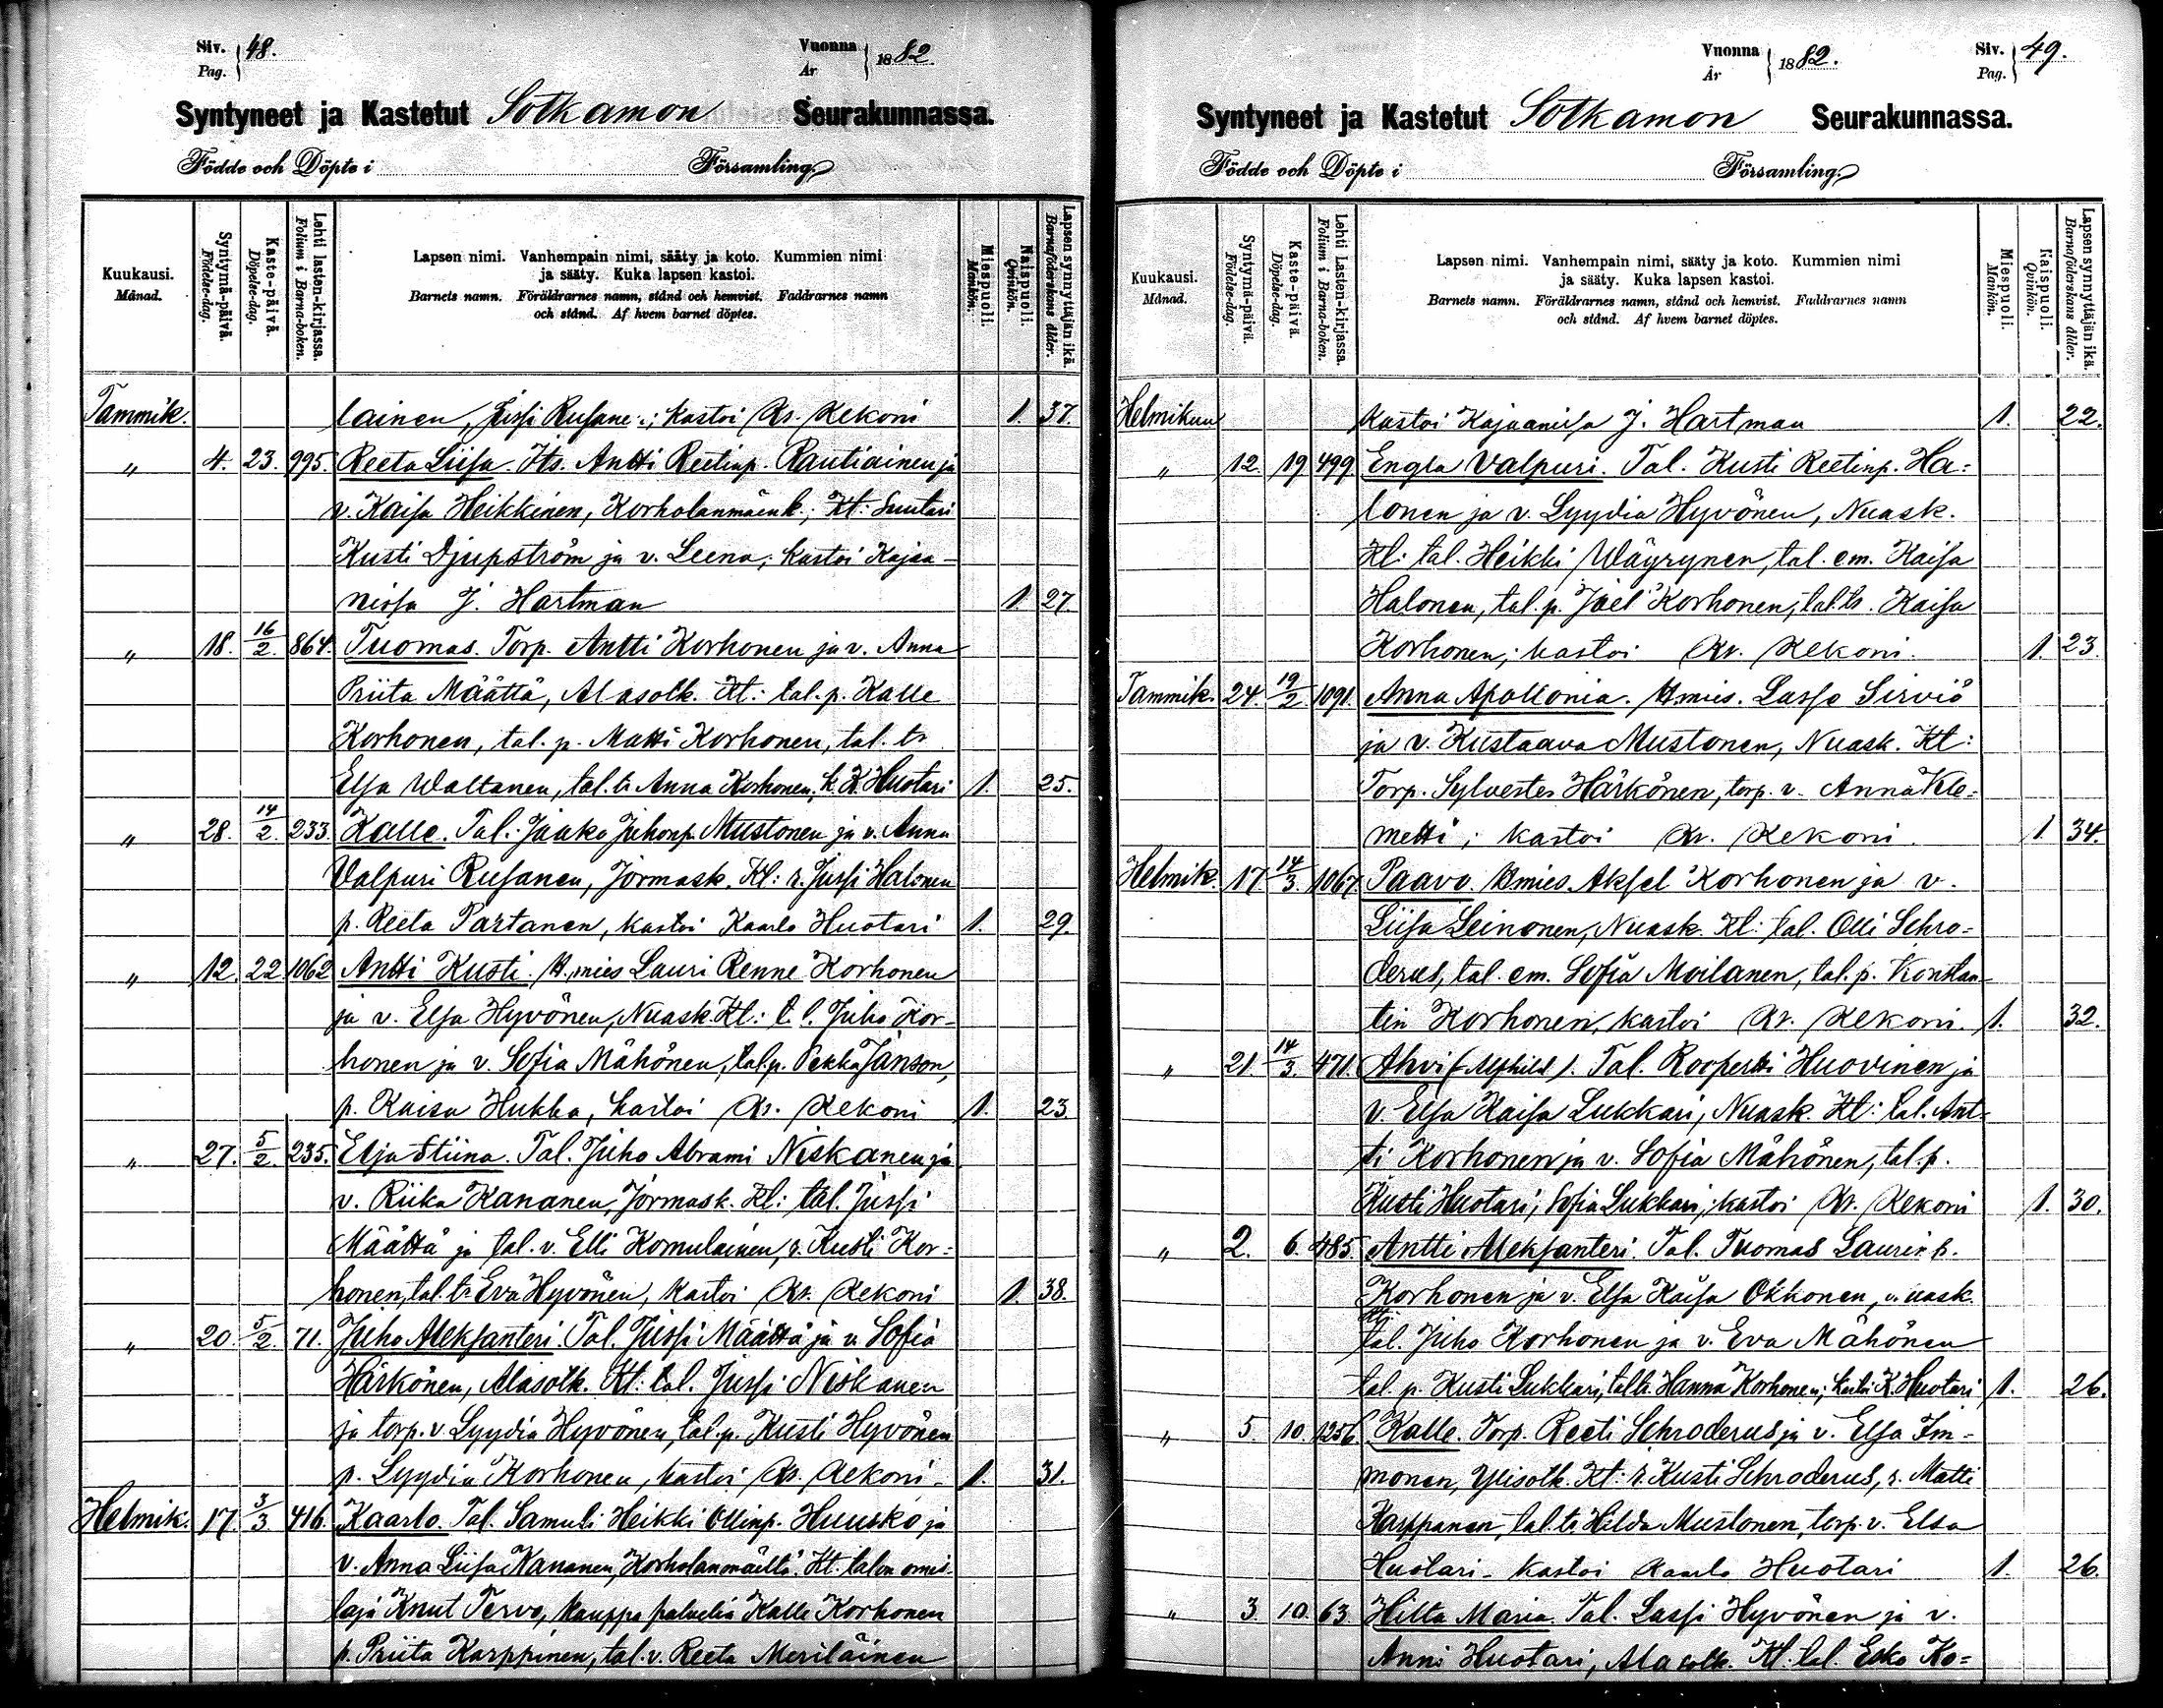 Siv. 48. Vuonna 1882.
Pag. År
Syntyneet ja Kastetut Sotkamon Seurakunnassa.
Födde och Döpte i Församling.
Kuukausi. Månad.
Syntymä-päivä. Födelse-dag.
Kaste-päivä. Döpelse-dag.
Lehti lasten-kirjassa. Folium i Barna-boken.
Lapsen nimi. Vanhempain nimi, sääty ja koto. Kummien nimi
ja sääty. Kuka lapsen kastoi.
Barnets namn. Föräldrarnes namn, stånd och hemvist. Faddrarnes namn
och stånd. Af hvem barnet döptes.
Miespuoli. Mankön.
Naispuoli. Qvinkön.
Lapsen synnyttäjän ikä. Barnaföderskans ålder.
Tammik. lainen, Jussi Rusane; kastoi Kr. Kekoni 1. 37.
" 4. 23. 995. Reeta Liisa. Its. Antti Reetinp. Rautiainen ja
v. Kaisa Heikkinen, Korholanmäenk.; Kt: Suutari
Kusti Djupström ja v. Leena; kastoi Kajaa-
nissa J. Hartman 1. 27.
" 18. 16/2. 864. Tuomas. Torp. Antti Korhonen ja v. Anna
Priita Määttä, Alasotk. Kt.: tal. p. Kalle
Korhonen, tal. p. Matti Korhonen, tal. tr
Elsa Waltanen, tal. tr Anna Korhonen, k. K. Huotari 1. 25.
" 28. 14/2. 233. Kalle. Tal. Jaako Juhonp. Mustonen ja v. Anna
Valpuri Rusanen, Jormask. Kt: r. Jussi Halonen
p. Reeta Partanen, kastoi Kaarlo Huotari 1. 29.
" 12. 22. 1062 Antti Kusti. It.mies Lauri Renne Korhonen
ja v. Elsa Hyvönen, Nuask. Kt.: t. l. Juho Kor-
honen ja v. Sofia Mähönen, tal. p. Pekka Janson,
p. Kaisa Hukka, kastoi Kr. Kekoni 1. 23
" 27. 5/2. 235. Elja Stiina. Tal. Juho Abrami Niskanen ja
v. Riika Kananen, Jormask. Kt: tal. Jussi
Määttä ja tal. v. Elli Komulainen, r. Kusti Kor=
honen, tal. tr Eva Hyvönen, kastoi Kr. Kekoni 1. 38.
" 20. 5/2. 71. Juho Aleksanteri. Tal. Jussi Määttä ja v. Sofia
Härkönen, Alasotk. Kt: tal. Jussi Niskanen
ja torp. v. Lyydia Hyvönen, tal. p. Kusti Hyvönen
p. Lyydia Korhonen, kastoi Kr. Kekoni. 1. 31.
Helmik. 17. 3/3 416. Kaarlo. Tal. Samuli Heikki Ollinp. Huusko ja
v. Anna Liisa Kananen, Korholanmäeltä. Kt. talon omis-
taja Knut Tervo, kauppa palvelia Kalle Korhonen
p. Priita Karppinen, tal. v. Reeta Meriläinen
Vuonna 1882. Siv. 49.
År Pag.
Syntyneet ja Kastetut Sotkamon Seurakunnassa.
Födde och Döpte i Församling.
Kuukausi. Månad.
Syntymä-päivä. Födelse-dag.
Kaste-päivä. Döpelse-dag.
Lehti Lasten-kirjassa. Folium i Barna-boken.
Lapsen nimi. Vanhempain nimi, sääty ja koto. Kummien nimi
ja sääty. Kuka lapsen kastoi.
Barnets namn. Föräldrarnes namn, stånd och hemvist. Faddrarnes namn
och stånd. Af hvem barnet döptes.
Miespuoli. Mankön.
Naispuoli. Qvinkön.
Lapsen synnyttäjän ikä. Barnaföderskans ålder.
Helmikuu kastoi Kajaanissa J. Hartman 1. 22.
" 12. 19 499 Engla Valpuri. Tal. Kusti Reetinp. Ha=
lonen ja v. Lyydia Hyvönen, Nuask.
Kt: tal. Heikki Wäyrynen, tal. em. Kaisa
Halonen, tal. p. Joel Korhonen, tal. tr. Kaisa
Korhonen; kastoi Kr. Kekoni. 1. 23.
Tammik. 24. 19/2 1091. Anna Apollonia. It.mies. Lasse Sirviö
ja v. Kustaava Mustonen, Nuask. Kt:
Torp. Sylvester Härkönen, torp. v. Anna Kle-
metti; kastoi Kr. Kekoni. 1. 34.
Helmik. 17 14/3. 1067. Paavo. It.mies. Aksel Korhonen ja v.
Liisa Leinonen, Nuask. Kt: tal. Olli Schro-
derus, tal. em. Sofia Moilanen, tal. p. Konstan-
tin Korhonen, kastoi Kr. Kekoni. 1. 32.
" 21. 14/3. 471. Ahvi (Alfhild). Tal. Roopertti Huovinen ja
v. Elsa Kaisa Lukkari, Nuask. Kt: tal. Ant-
ti Korhonen ja v. Sofia Mähönen, tal. p.
Kusti Huotari, Sofia Lukkari; kastoi Kr. Kekoni 1. 30.
" 2. 6. 485. Antti Aleksanteri. Tal. Tuomas Laurinp.
Korhonen ja v. Elsa Kaisa Okkonen, Nuask.
Kt: tal. Juho Korhonen ja v. Eva Mähönen
tal. p. Kusti Lukkari, tal. tr. Hanna Korhonen; kastoi K. Huotari 1. 26.
" 5. 10. 1256. Kalle. Torp. Reeti Schroderus ja v. Elsa Im-
monen, Ylisotk. Kt: r. Kusti Schroderus, r. Matti
Karppanen, tal. tr Hilda Mustonen, torp. v. Elsa
Huotari. kastoi Kaarlo Huotari 1. 26.
" 3. 10. 63 Hilta Maria. Tal. Lassi Hyvönen ja v.
Anni Huotari, Alasotk. Kt. tal. Esko Ko=